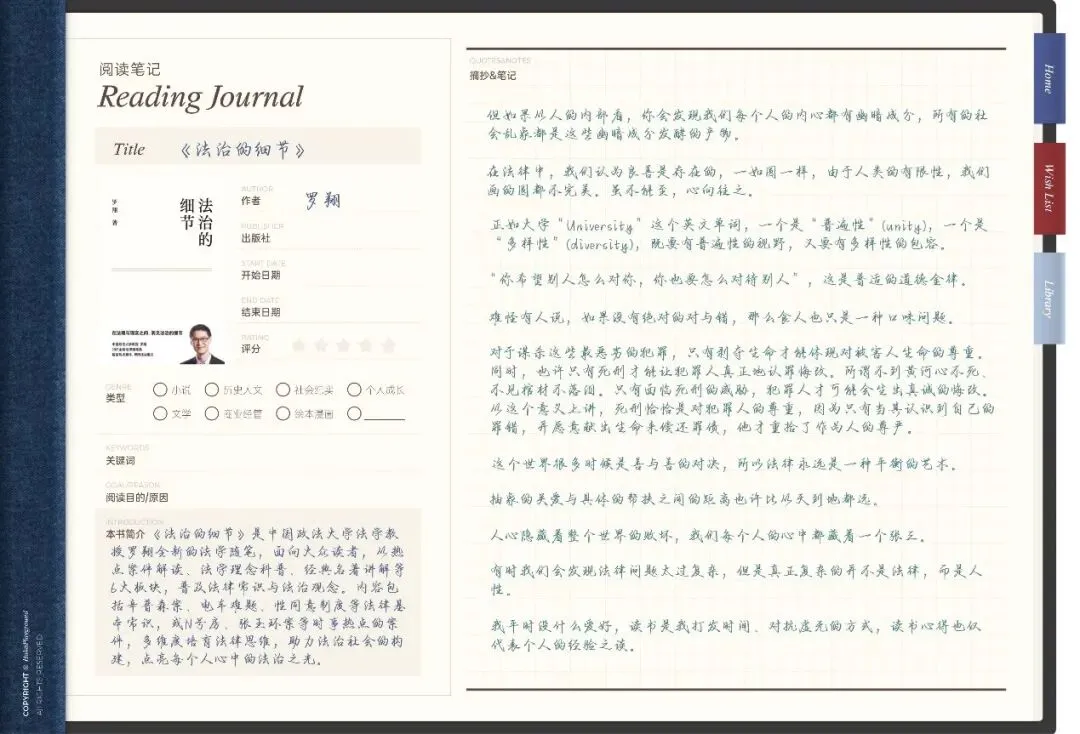 阅读笔记
Reading Journal
Title 《法治的细节》
罗翔 著
法治的
细节
AUTHOR
作者 罗翔
PUBLISHER
出版社
START DATE
开始日期
END DATE
结束日期
RATING
评分
GENRE
类型
小说 历史人文 社会纪实 个人成长
文学 商业经管 绘本漫画
KEYWORDS
关键词
GOAL/REASON
阅读目的/原因
INTRODUCTION
本书简介 《法治的细节》是中国政法大学法学教
授罗翔全新的法学随笔，面向大众读者，从热
点案件解读、法学理念科普、经典名著讲解等
6大板块，普及法律常识与法治观念。内容包
括辛普森案、电车难题、性同意制度等法律基
本常识，或N号房、张玉环案等时事热点的案
件，多维度培育法律思维，助力法治社会的构
建，点亮每个人心中的法治之光。
QUOTES&NOTES
摘抄&笔记
但如果从人的内部看，你会发现我们每个人的内心都有幽暗成分，所有的社
会乱象都是这些幽暗成分发酵的产物。
在法律中，我们认为良善是存在的，一如圆一样，由于人类的有限性，我们
画的圆都不完美。虽不能至，心向往之。
正如大学“University”这个英文单词，一个是“普遍性”(unity)，一个是
“多样性”(diversity)，既要有普遍性的视野，又要有多样性的包容。
“你希望别人怎么对你，你也要怎么对待别人”，这是普适的道德金律。
难怪有人说，如果没有绝对的对与错，那么食人也只是一种口味问题。
对于谋杀这些最恶劣的犯罪，只有剥夺生命才能体现对被害人生命的尊重。
同时，也许只有死刑才能让犯罪人真正地认罪悔改。所谓不到黄河心不死、
不见棺材不落泪。只有面临死刑的威胁，犯罪人才可能会生出真诚的悔改。
从这个意义上讲，死刑恰恰是对犯罪人的尊重，因为只有当其认识到自己的
罪错，并愿意献出生命来偿还罪债，他才重拾了作为人的尊严。
这个世界很多时候是善与善的对决，所以法律永远是一种平衡的艺术。
抽象的关爱与具体的帮扶之间的距离也许比从天到地都远。
人心隐藏着整个世界的败坏，我们每个人的心中都藏着一个张三。
有时我们会发现法律问题太过复杂，但是真正复杂的并不是法律，而是人
性。
我平时没什么爱好，读书是我打发时间、对抗虚无的方式，读书心得也仅
代表个人的经验之谈。
Home
Wish List
Library
ALL RIGHTS RESERVED